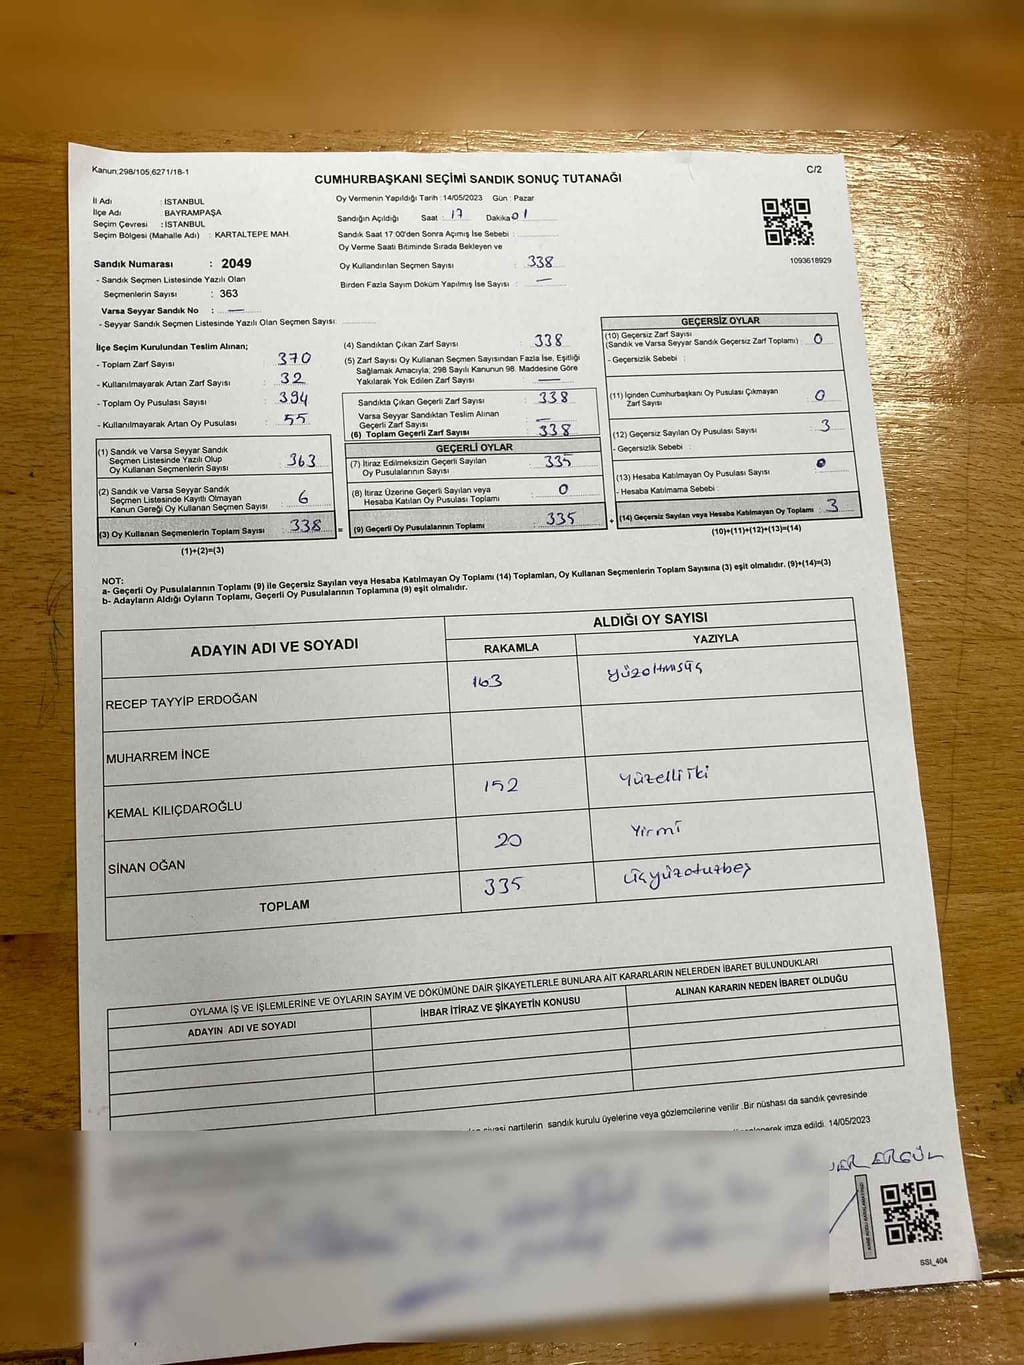 Kanun;298/105,6271/18-1
C/2
CUMHURBAŞKANI SEÇİMİ SANDIK SONUÇ TUTANAĞI
İl Adı : İSTANBUL
İlçe Adı BAYRAMPAŞA
Seçim Çevresi : İSTANBUL
Seçim Bölgesi (Mahalle Adı) : KARTALTEPE MAH.
Oy Vermenin Yapıldığı Tarih :14/05/2023 Gün : Pazar
Sandığın Açıldığı Saat : 17 Dakika 01
Sandık Saat 17:00'den Sonra Açımış İse Sebebi :
Oy Verme Saati Bitiminde Sırada Bekleyen ve
Oy Kullandırılan Seçmen Sayısı : 338
Birden Fazla Sayım Döküm Yapılmış İse Sayısı : —
1093618929
Sandık Numarası : 2049
- Sandık Seçmen Listesinde Yazılı Olan
Seçmenlerin Sayısı : 363
Varsa Seyyar Sandık No : —
- Seyyar Sandık Seçmen Listesinde Yazılı Olan Seçmen Sayısı:
İlçe Seçim Kurulundan Teslim Alınan;
- Toplam Zarf Sayısı : 370
- Kullanılmayarak Artan Zarf Sayısı : 32
- Toplam Oy Pusulası Sayısı : 394
- Kullanılmayarak Artan Oy Pusulası : 55
(1) Sandık ve Varsa Seyyar Sandık
Seçmen Listesinde Yazılı Olup
Oy Kullanan Seçmenlerin Sayısı : 363
(2) Sandık ve Varsa Seyyar Sandık
Seçmen Listesinde Kayıtlı Olmayan
Kanun Gereği Oy Kullanan Seçmen Sayısı : 6
(3) Oy Kullanan Seçmenlerin Toplam Sayısı : 338
(1)+(2)=(3)
(4) Sandıktan Çıkan Zarf Sayısı : 338
(5) Zarf Sayısı Oy Kullanan Seçmen Sayısından Fazla İse, Eşitliği
Sağlamak Amacıyla; 298 Sayılı Kanunun 98. Maddesine Göre
Yakılarak Yok Edilen Zarf Sayısı : —
Sandıkta Çıkan Geçerli Zarf Sayısı : 338
Varsa Seyyar Sandıktan Teslim Alınan
Geçerli Zarf Sayısı : —
(6) Toplam Geçerli Zarf Sayısı : 338
GEÇERLİ OYLAR
(7) İtiraz Edilmeksizin Geçerli Sayılan
Oy Pusulalarının Sayısı : 335
(8) İtiraz Üzerine Geçerli Sayılan veya
Hesaba Katılan Oy Pusulası Toplamı : 0
= (9) Geçerli Oy Pusulalarının Toplamı : 335
GEÇERSİZ OYLAR
(10) Geçersiz Zarf Sayısı
(Sandık ve Varsa Seyyar Sandık Geçersiz Zarf Toplamı) : 0
- Geçersizlik Sebebi :
(11) İçinden Cumhurbaşkanı Oy Pusulası Çıkmayan
Zarf Sayısı : 0
(12) Geçersiz Sayılan Oy Pusulası Sayısı : 3
- Geçersizlik Sebebi :
(13) Hesaba Katılmayan Oy Pusulası Sayısı : 0
- Hesaba Katılmama Sebebi :
+ (14) Geçersiz Sayılan veya Hesaba Katılmayan Oy Toplamı : 3
(10)+(11)+(12)+(13)=(14)
NOT:
a- Geçerli Oy Pusulalarının Toplamı (9) ile Geçersiz Sayılan veya Hesaba Katılmayan Oy Toplamı (14) Toplamları, Oy Kullanan Seçmenlerin Toplam Sayısına (3) eşit olmalıdır. (9)+(14)=(3)
b- Adayların Aldığı Oyların Toplamı, Geçerli Oy Pusulalarının Toplamına (9) eşit olmalıdır.
ADAYIN ADI VE SOYADI
ALDIĞI OY SAYISI
RAKAMLA YAZIYLA
RECEP TAYYİP ERDOĞAN 163 yüzaltmışüç
MUHARREM İNCE
KEMAL KILIÇDAROĞLU 152 yüzelliiki
SİNAN OĞAN 20 yirmi
TOPLAM 335 üçyüzotuzbeş
OYLAMA İŞ VE İŞLEMLERİNE VE OYLARIN SAYIM VE DÖKÜMÜNE DAİR ŞİKAYETLERLE BUNLARA AİT KARARLARIN NELERDEN İBARET BULUNDUKLARI
ADAYIN ADI VE SOYADI İHBAR İTİRAZ VE ŞİKAYETİN KONUSU ALINAN KARARIN NEDEN İBARET OLDUĞU
siyasi partilerin sandık kurulu üyelerine veya gözlemcilerine verilir .Bir nüshası da sandık çevresinde
imza edildi. 14/05/2023
ERGÜL
SSI_404